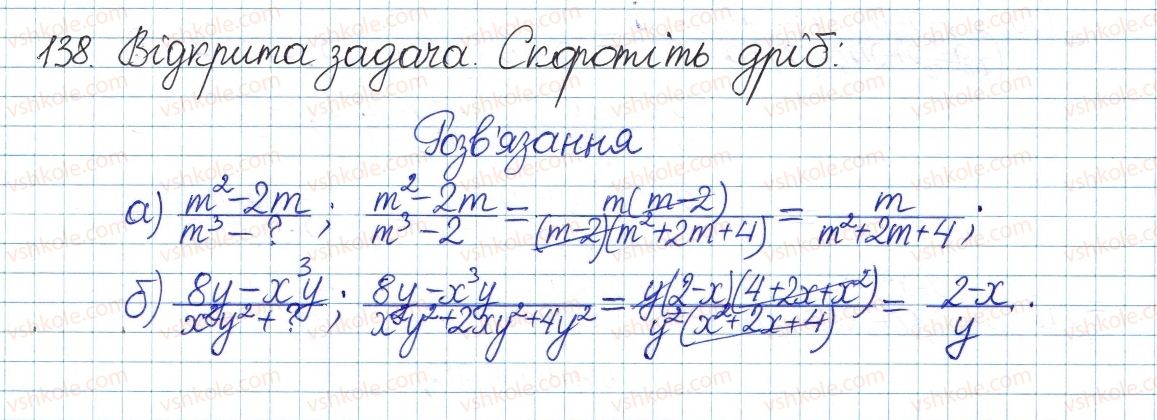 138. Відкрита задача. Скоротіть дріб:
Розв'язання
а) (m² - 2m)/(m³ - ?); (m² - 2m)/(m³ - 2) = m(m - 2)/((m - 2)(m² + 2m + 4)) = m/(m² + 2m + 4);
б) (8y - x³y)/(x²y² + ?); (8y - x³y)/(x²y² + 2xy² + 4y²) = y(2 - x)(4 + 2x + x²)/(y²(x² + 2x + 4)) = (2 - x)/y.